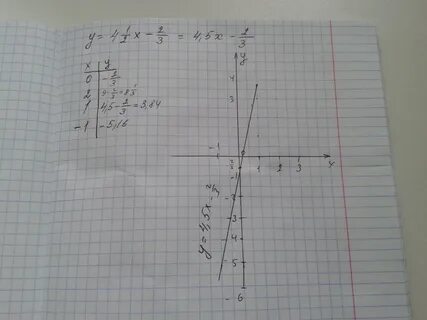 y = 4 1/2 x - 2/3 = 4,5x - 2/3
x | y
0 | -2/3
2 | 9 - 2/3 = 8 1/3
1 | 4,5 - 2/3 = 3,84
-1 | -5,16
y
4
3
-1 1 2 3 x
-1
-2
-3
-4
-5
-6
y = 4,5x - 2/3